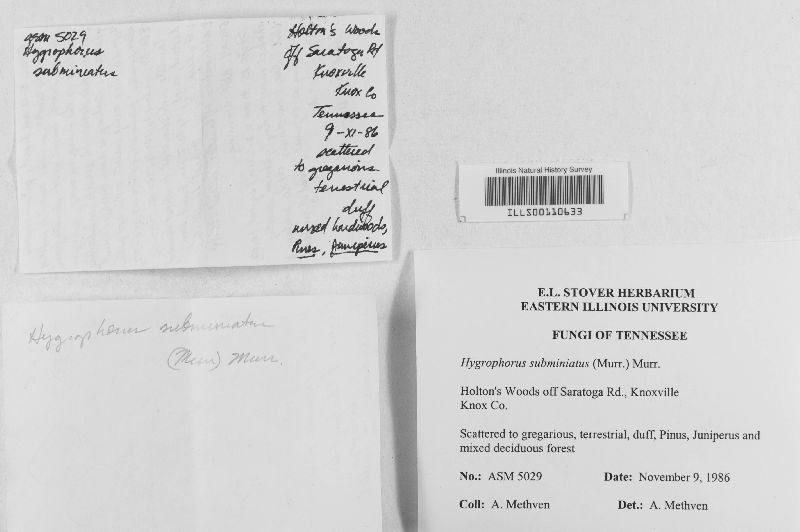 asm 5029
Hygrophorus
subminiatus
Holton's Woods
off Saratoga Rd
Knoxville
Knox Co
Tennessee
9-XI-86
scattered
to gregarious
terrestrial
duff
mixed hardwoods,
Pines, Juniperus
Illinois Natural History Survey
ILLS00110633
Hygrophorus subminiatus
(Murr) Murr.
E.L. STOVER HERBARIUM
EASTERN ILLINOIS UNIVERSITY
FUNGI OF TENNESSEE
Hygrophorus subminiatus (Murr.) Murr.
Holton's Woods off Saratoga Rd., Knoxville
Knox Co.
Scattered to gregarious, terrestrial, duff, Pinus, Juniperus and
mixed deciduous forest
No.: ASM 5029 Date: November 9, 1986
Coll: A. Methven Det.: A. Methven